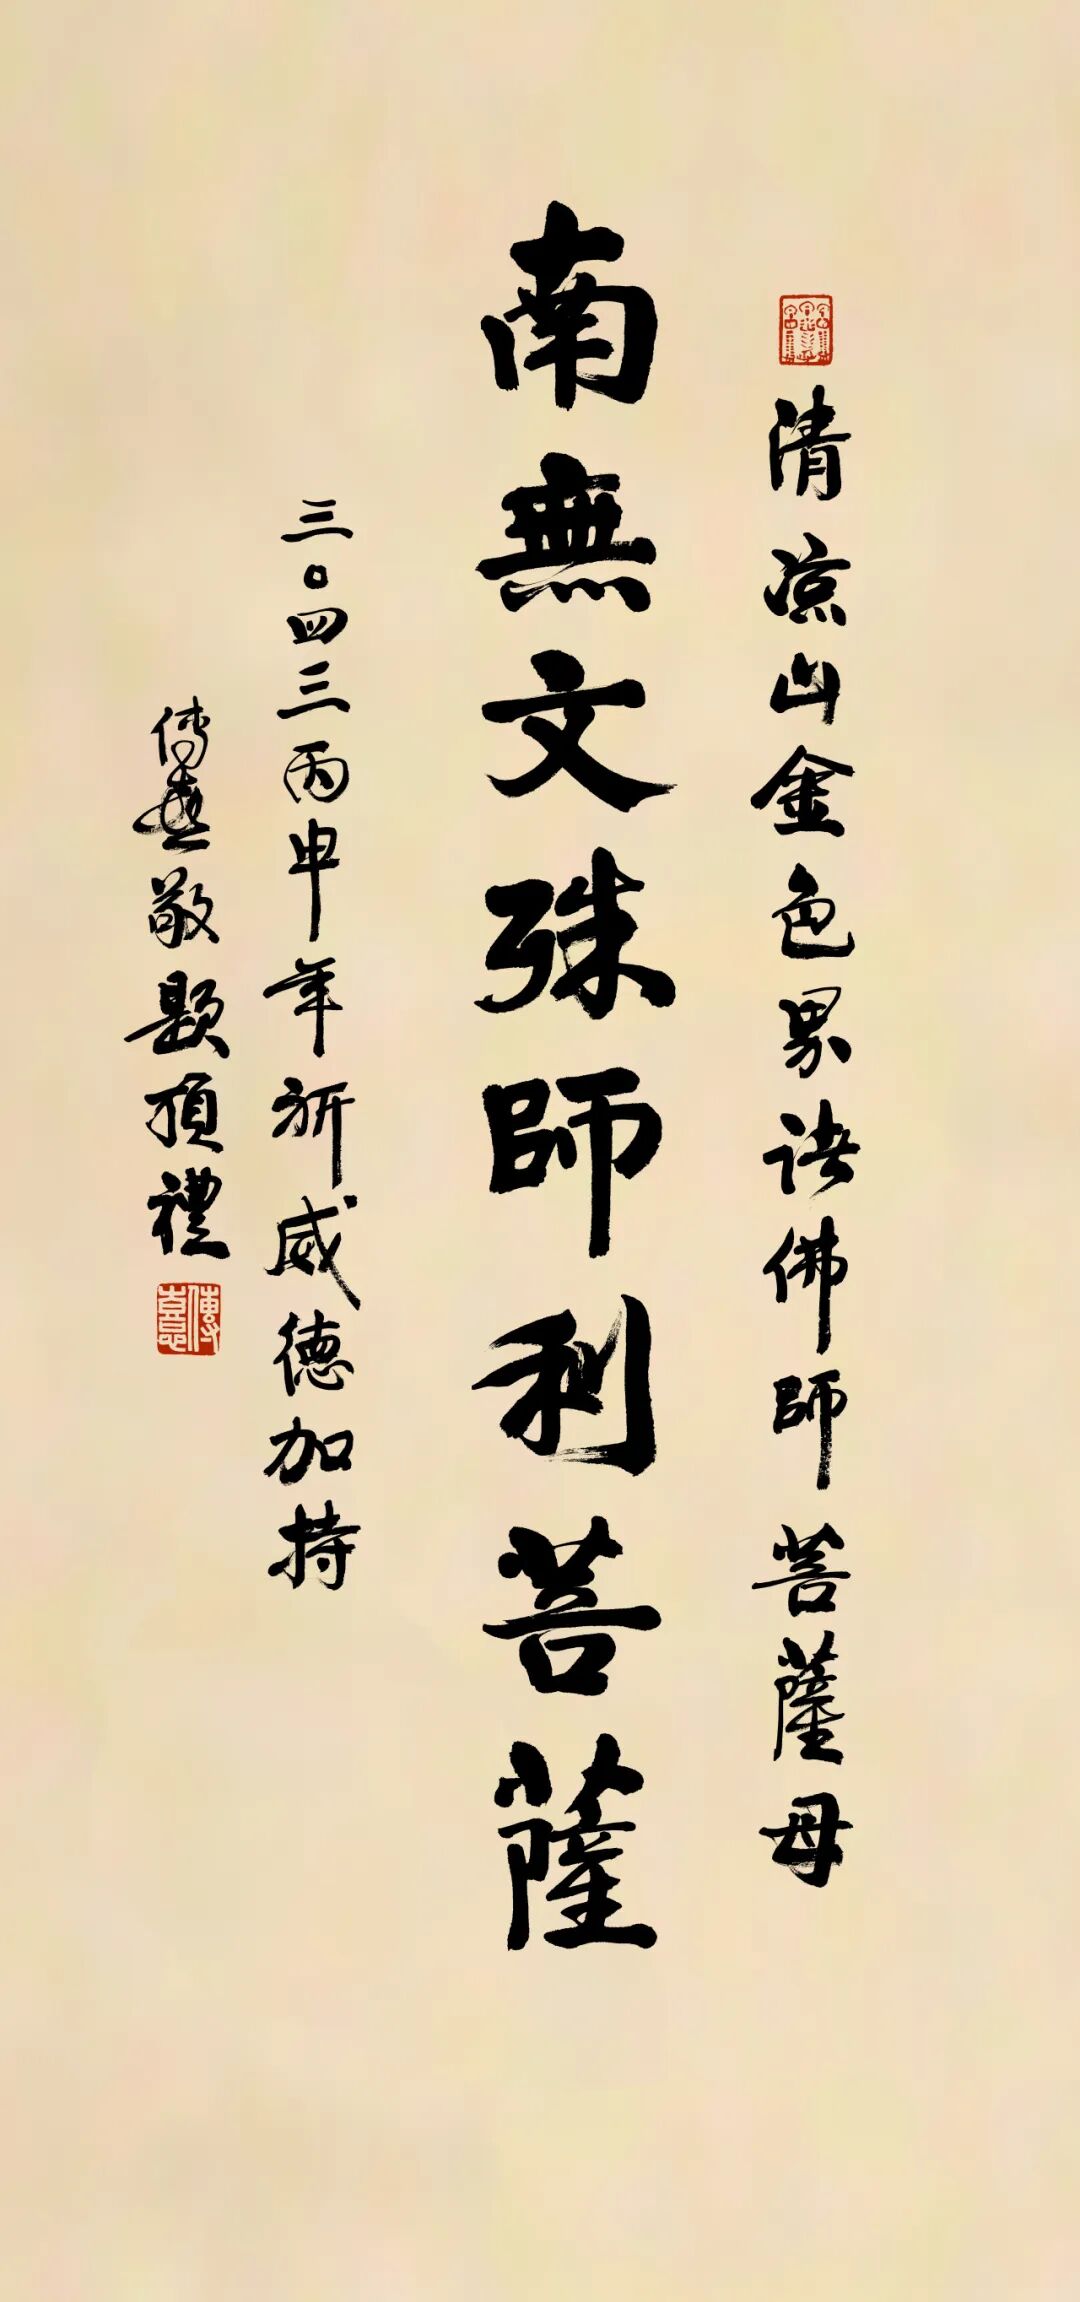 清凉山金色界诀佛師菩薩母
南無文殊師利菩薩
三〇四三丙申年祈威德加持
傳喜敬題頂禮
傳喜